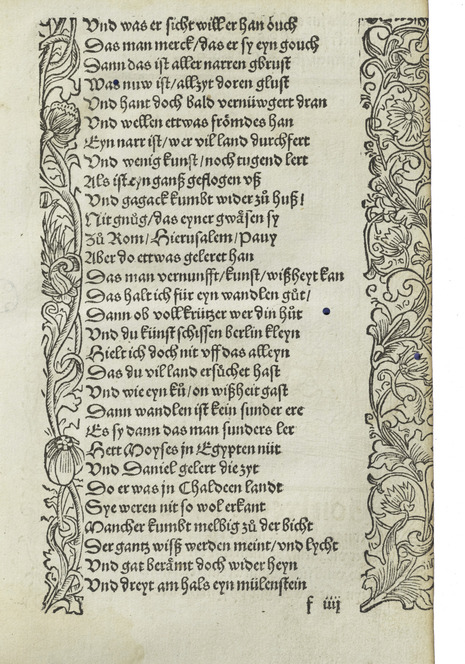 Vnd was er sicht will er han ouch
Das man merck / das er sy eyn gouch
Dann das ist aller narren gbrust
Was nuw ist / allzyt doren glust
Vnd hant doch bald vernüwgert dran
Vnd wellen ettwas frömdes han
Eyn narr ist / wer vil land durchfert
Vnd wenig kunst / noch tugend lert
Als ist eyn ganß geflogen vß
Vnd gagack kumbt wider zů huß!
Nit gnůg / das eyner gwäsen sy
Zů Rom / Hierusalem / Pauy
Aber do ettwas geleret han
Das man vernunfft / kunst / wißheyt kan
Das halt ich für eyn wandlen gůt /
Dann ob voll krützer wer din hüt
Vnd du künst schissen berlin kleyn
Hielt ich doch nit vff das alleyn
Das du vil land ersůchet hast
Vnd wie eyn ků / on wißheit gast
Dann wandlen ist kein sunder ere
Es sy dann das man sunders ler
Hett Moyses jn Egypten nüt
Vnd Daniel gelert die zyt
Do er was jn Chaldeen landt
Sye weren nit so wol erkant
Mancher kumbt melbig zů der bicht
Der gantz wiss werden meint / vnd lycht
Vnd gat berämt doch wider heyn
Vnd dreyt am hals eyn mülenstein
f iiij